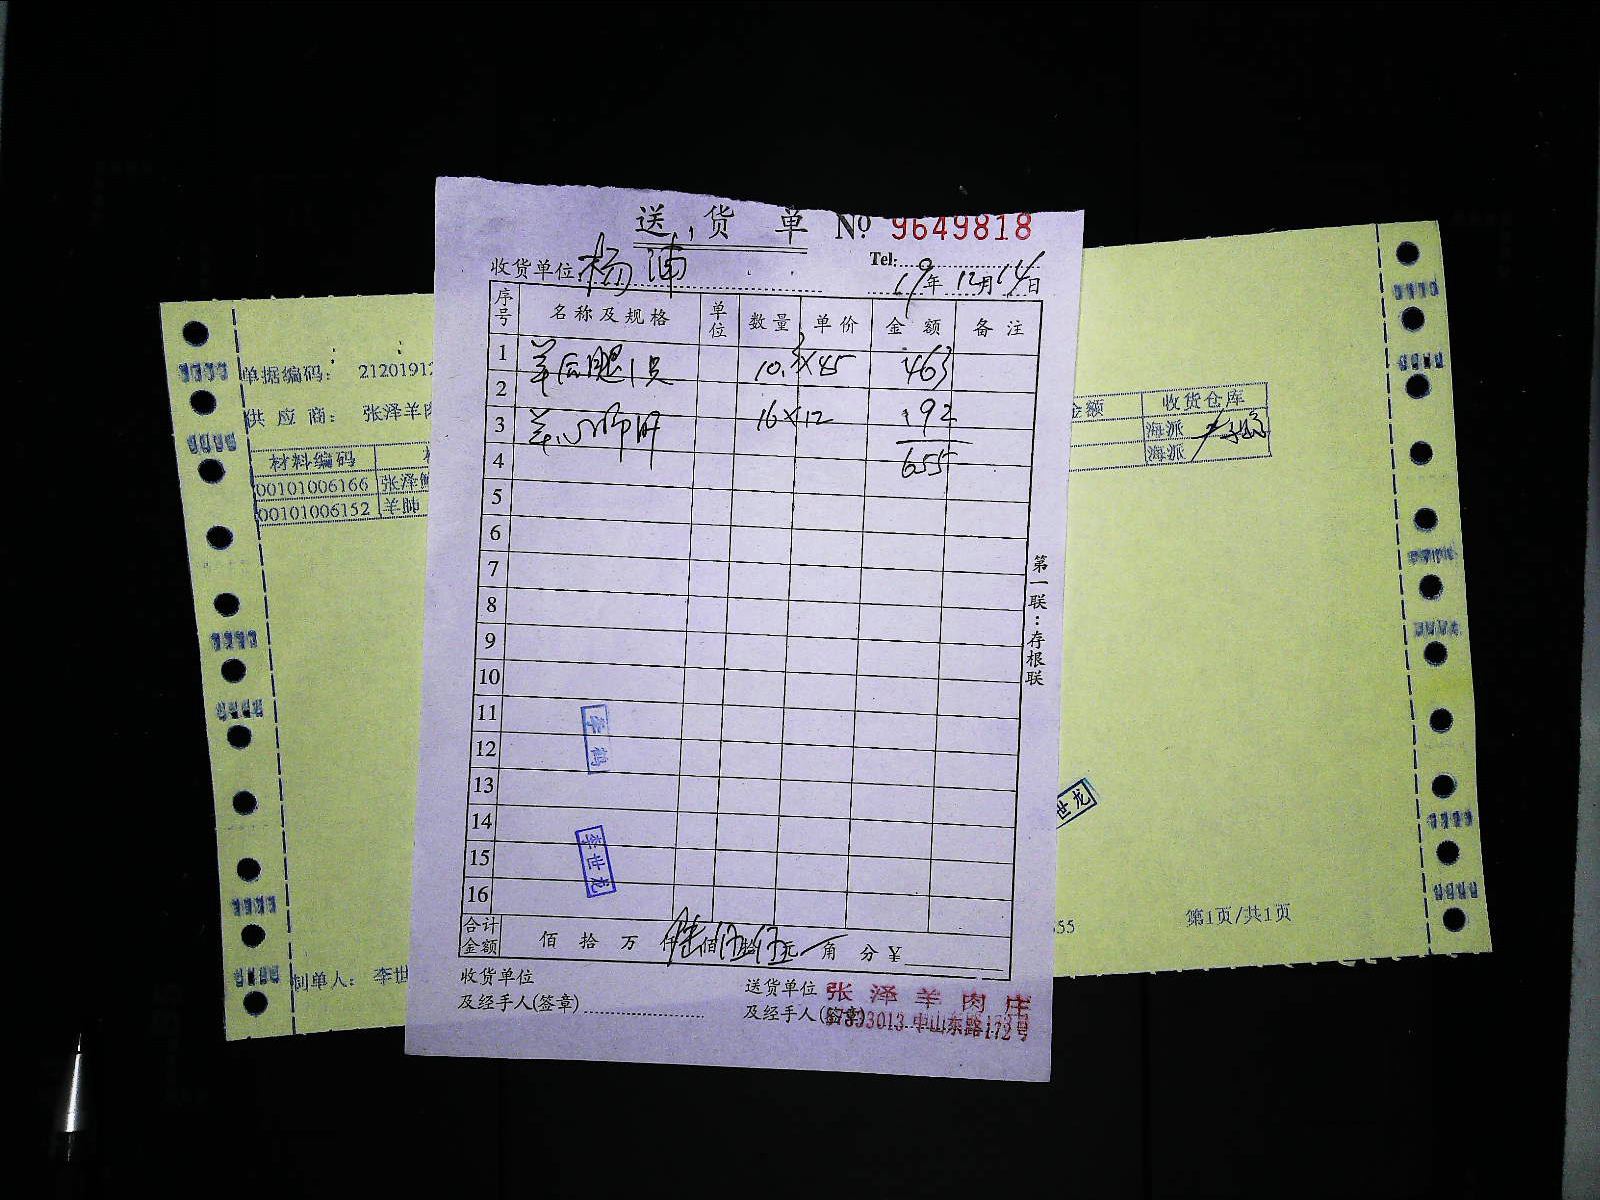 送 货 单 № 9649818
Tel:
收货单位 杨浦
19年 12月 14日
序号 名称及规格 单位 数量 单价 金额 备注
1 羊后腿1只 10.3×45 463
2
3 羊心 16×12 192
4 655
5
6
7
8
9
10
11
12
13
14
15
16
第一联：存根联
李鹤
李世龙
合计金额 佰 拾 万 仟 陆佰伍拾伍元 角 分 ¥
收货单位
及经手人(签章)
送货单位 张泽羊肉庄
及经手人(签章) 57893013 中山东路172号
单据编码： 21201912
供 应 商： 张泽羊肉
材料编码
00101006166 张泽
00101006152 羊肺
制单人： 李世
金额 收货仓库
海派
海派
世龙
655
第1页/共1页